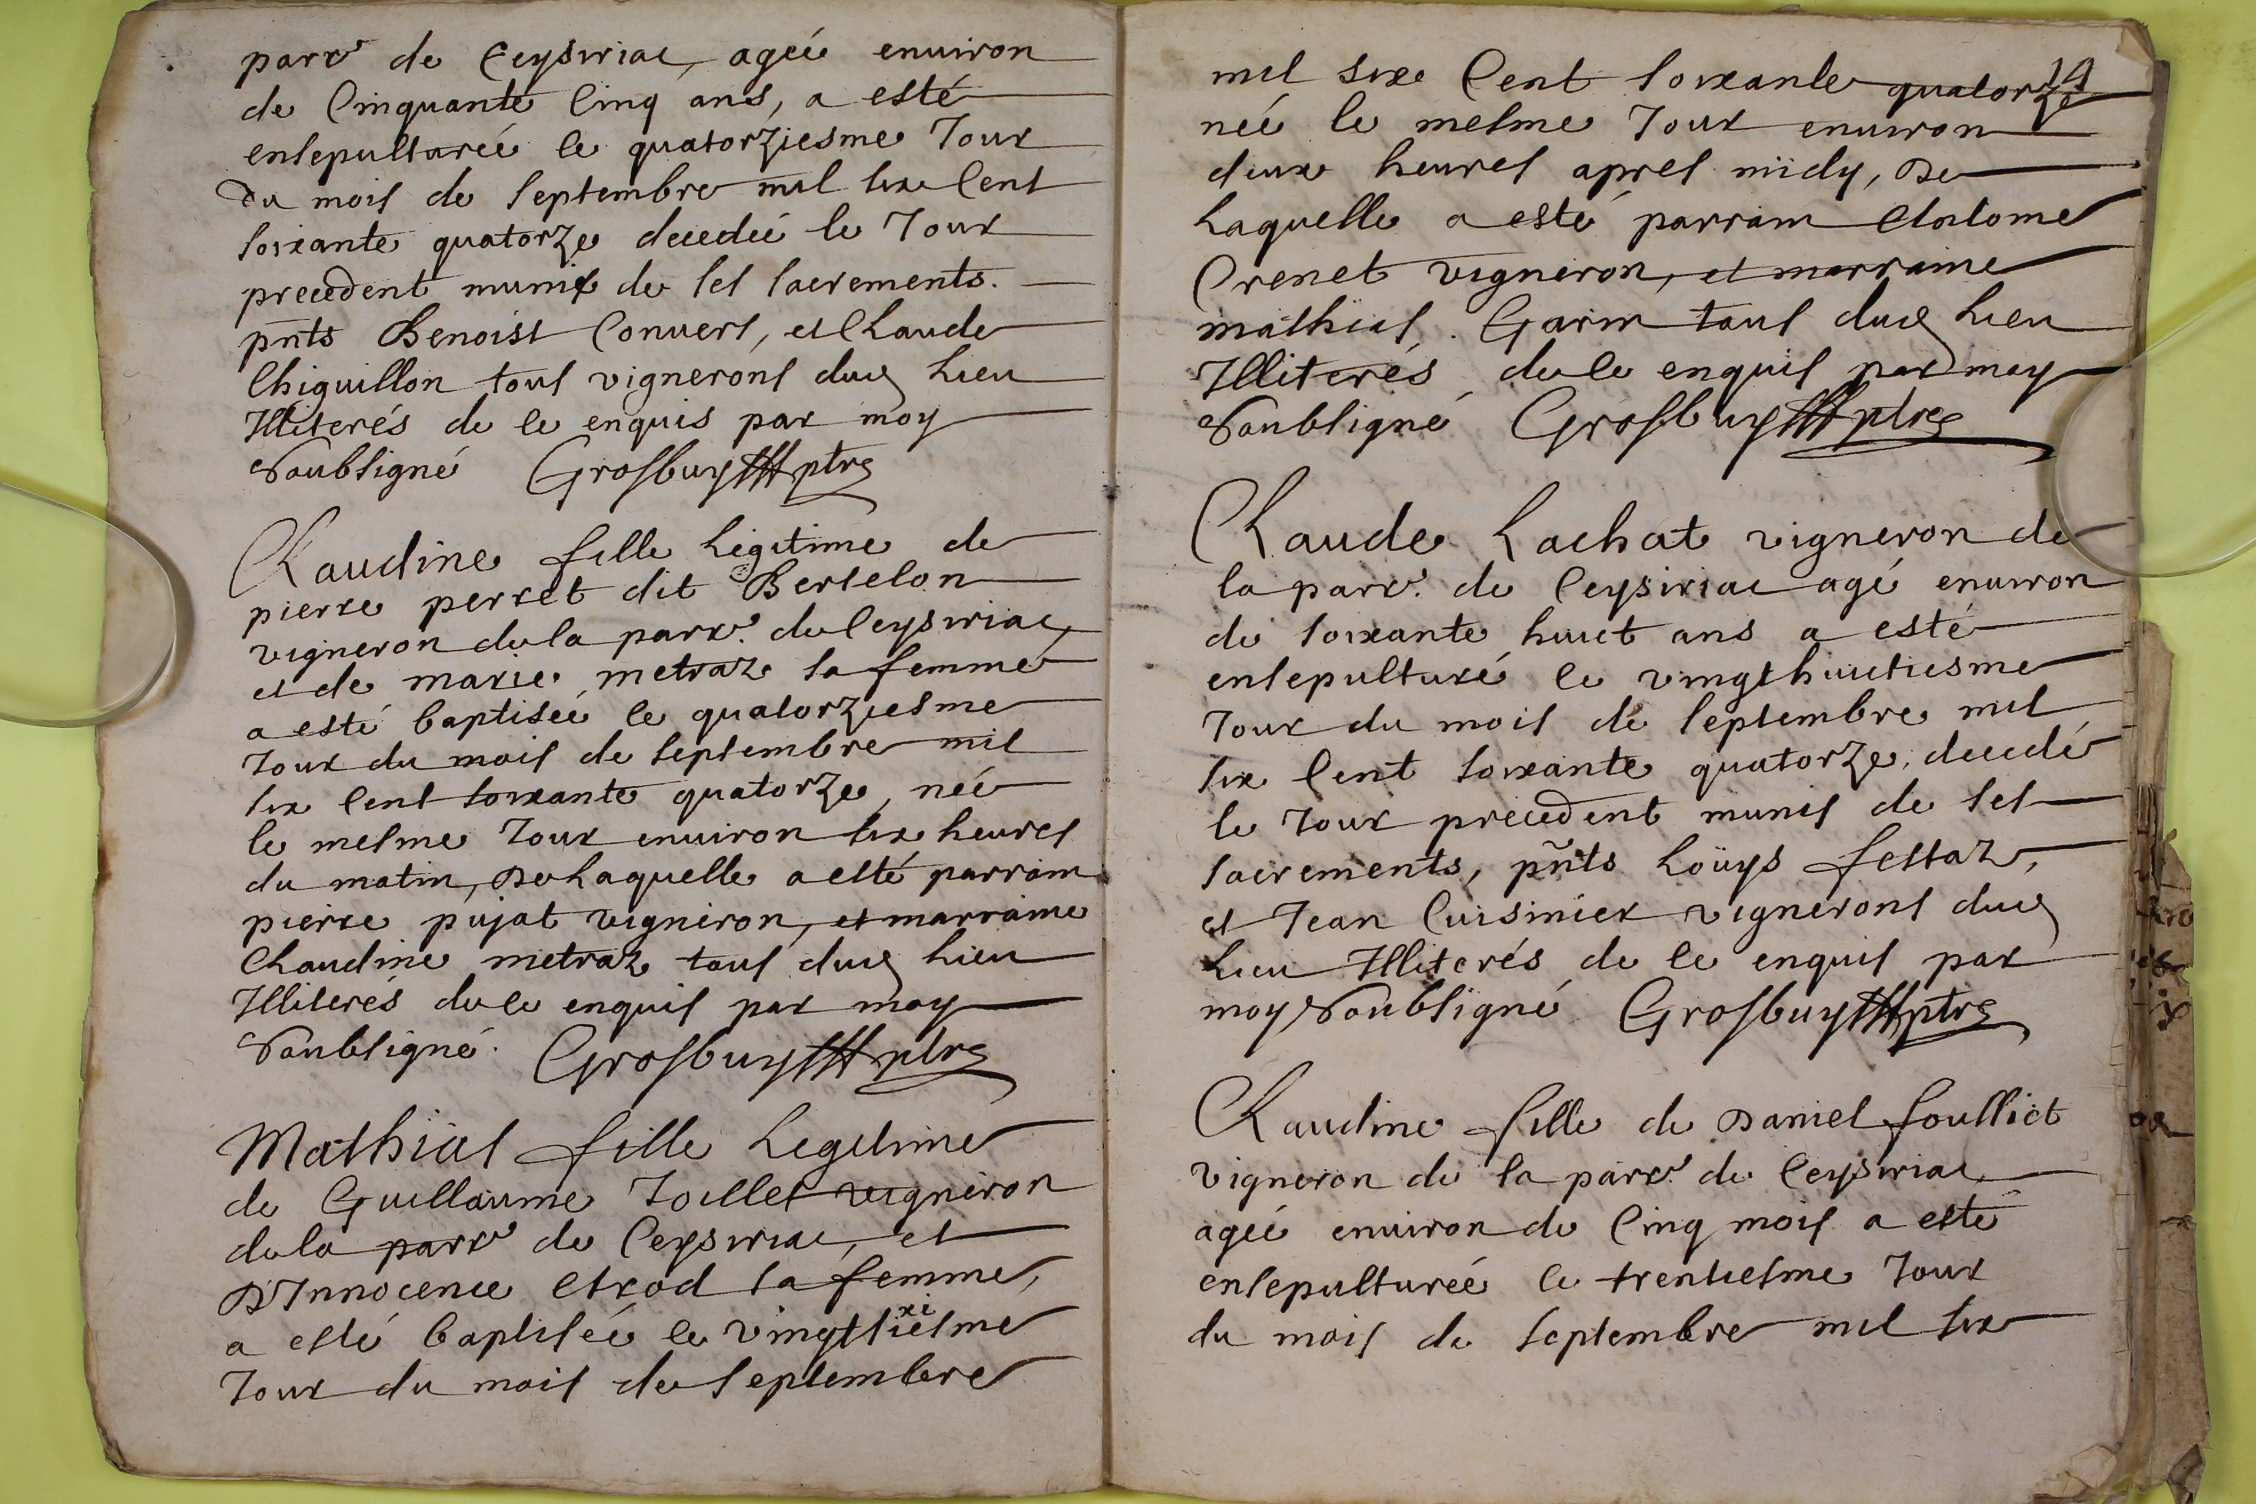 parr.e de Ceysiriac, ageé environ
de Cinquante Cinq ans, a esté
ensepultureé le quatorziesme Jour
Du mois de septembre mil six Cent
soixante quatorze decedeé le Jour
precedent munie de ses sacrements.
pnts Benoist Convers, et Claude
Chiguillon tous vignerons dud lieu
Illiterés de ce enquis par moy
Soubsigné Grosbuy ptre
Claudine fille Legitime de
pierre perret dit Bertelon
vigneron de la parr.e de Ceysiriac,
et de marie metraz sa femme
a esté baptiseé le quatorziesme
Jour du mois de septembre mil
six Cent soixante quatorze, neé
le mesme Jour environ six heures
du matin, De Laquelle a esté parrain
pierre pujat vigneron, et marraine
Claudine metraz tous dud lieu
Illiterés de ce enquis par moy
Soubsigné. Grosbuy ptre
Mathias fille Legitime
de Guillaume Joillet vigneron
de la parr.e de Ceysiriac, et
D'Innocence Etrod sa femme,
a esté baptiseé le vingtsixiesme
Jour du mois de septembre
14
mil six Cent soixante quatorze
neé le mesme Jour environ
deux heures apres midy, De
Laquelle a esté parrain
Crenet vigneron, et marraine
mathias Garin tous dud lieu
Illiterés de ce enquis par moy
Soubsigné Grosbuy ptre
Claude Lachat vigneron de
la parr.e de Ceysiriac agé environ
de soixante huict ans a esté
ensepulturé le vingthuictiesme
Jour du mois de septembre mil
six Cent soixante quatorze, decedé
le Jour precedent munis de ses
sacrements, pñts Loüys festaz,
et Jean Cuisinier vignerons dud
Lieu Illiterés de ce enquis par
moy Soubsigné Grosbuy ptre
Claudine fille de Daniel foulliet
vigneron de la parr.e de Ceysiriac
ageé environ de Cinq mois a esté
ensepultureé le trentiesme Jour
du mois de septembre mil six